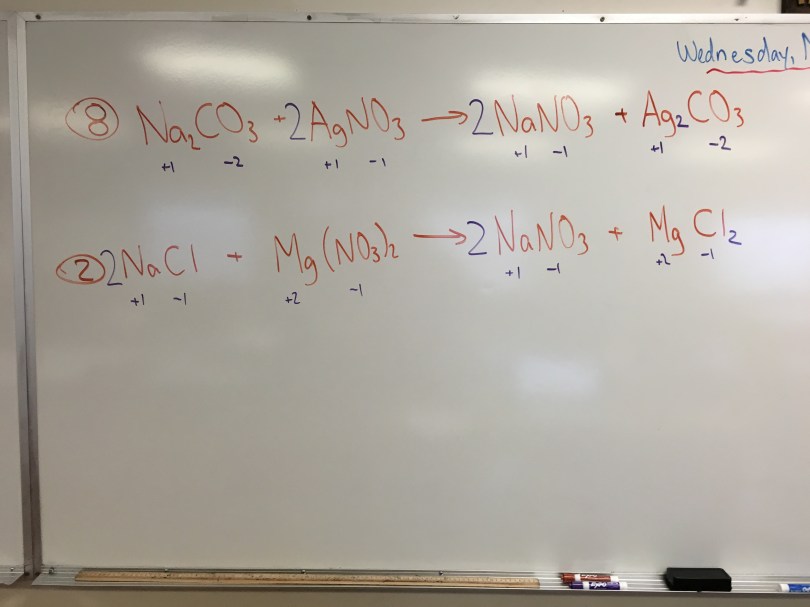 Wednesday,
⑧ Na₂CO₃ + 2AgNO₃ → 2NaNO₃ + Ag₂CO₃
+1 -2 +1 -1 +1 -1 +1 -2
② 2NaCl + Mg(NO₃)₂ → 2NaNO₃ + MgCl₂
+1 -1 +2 -1 +1 -1 +2 -1